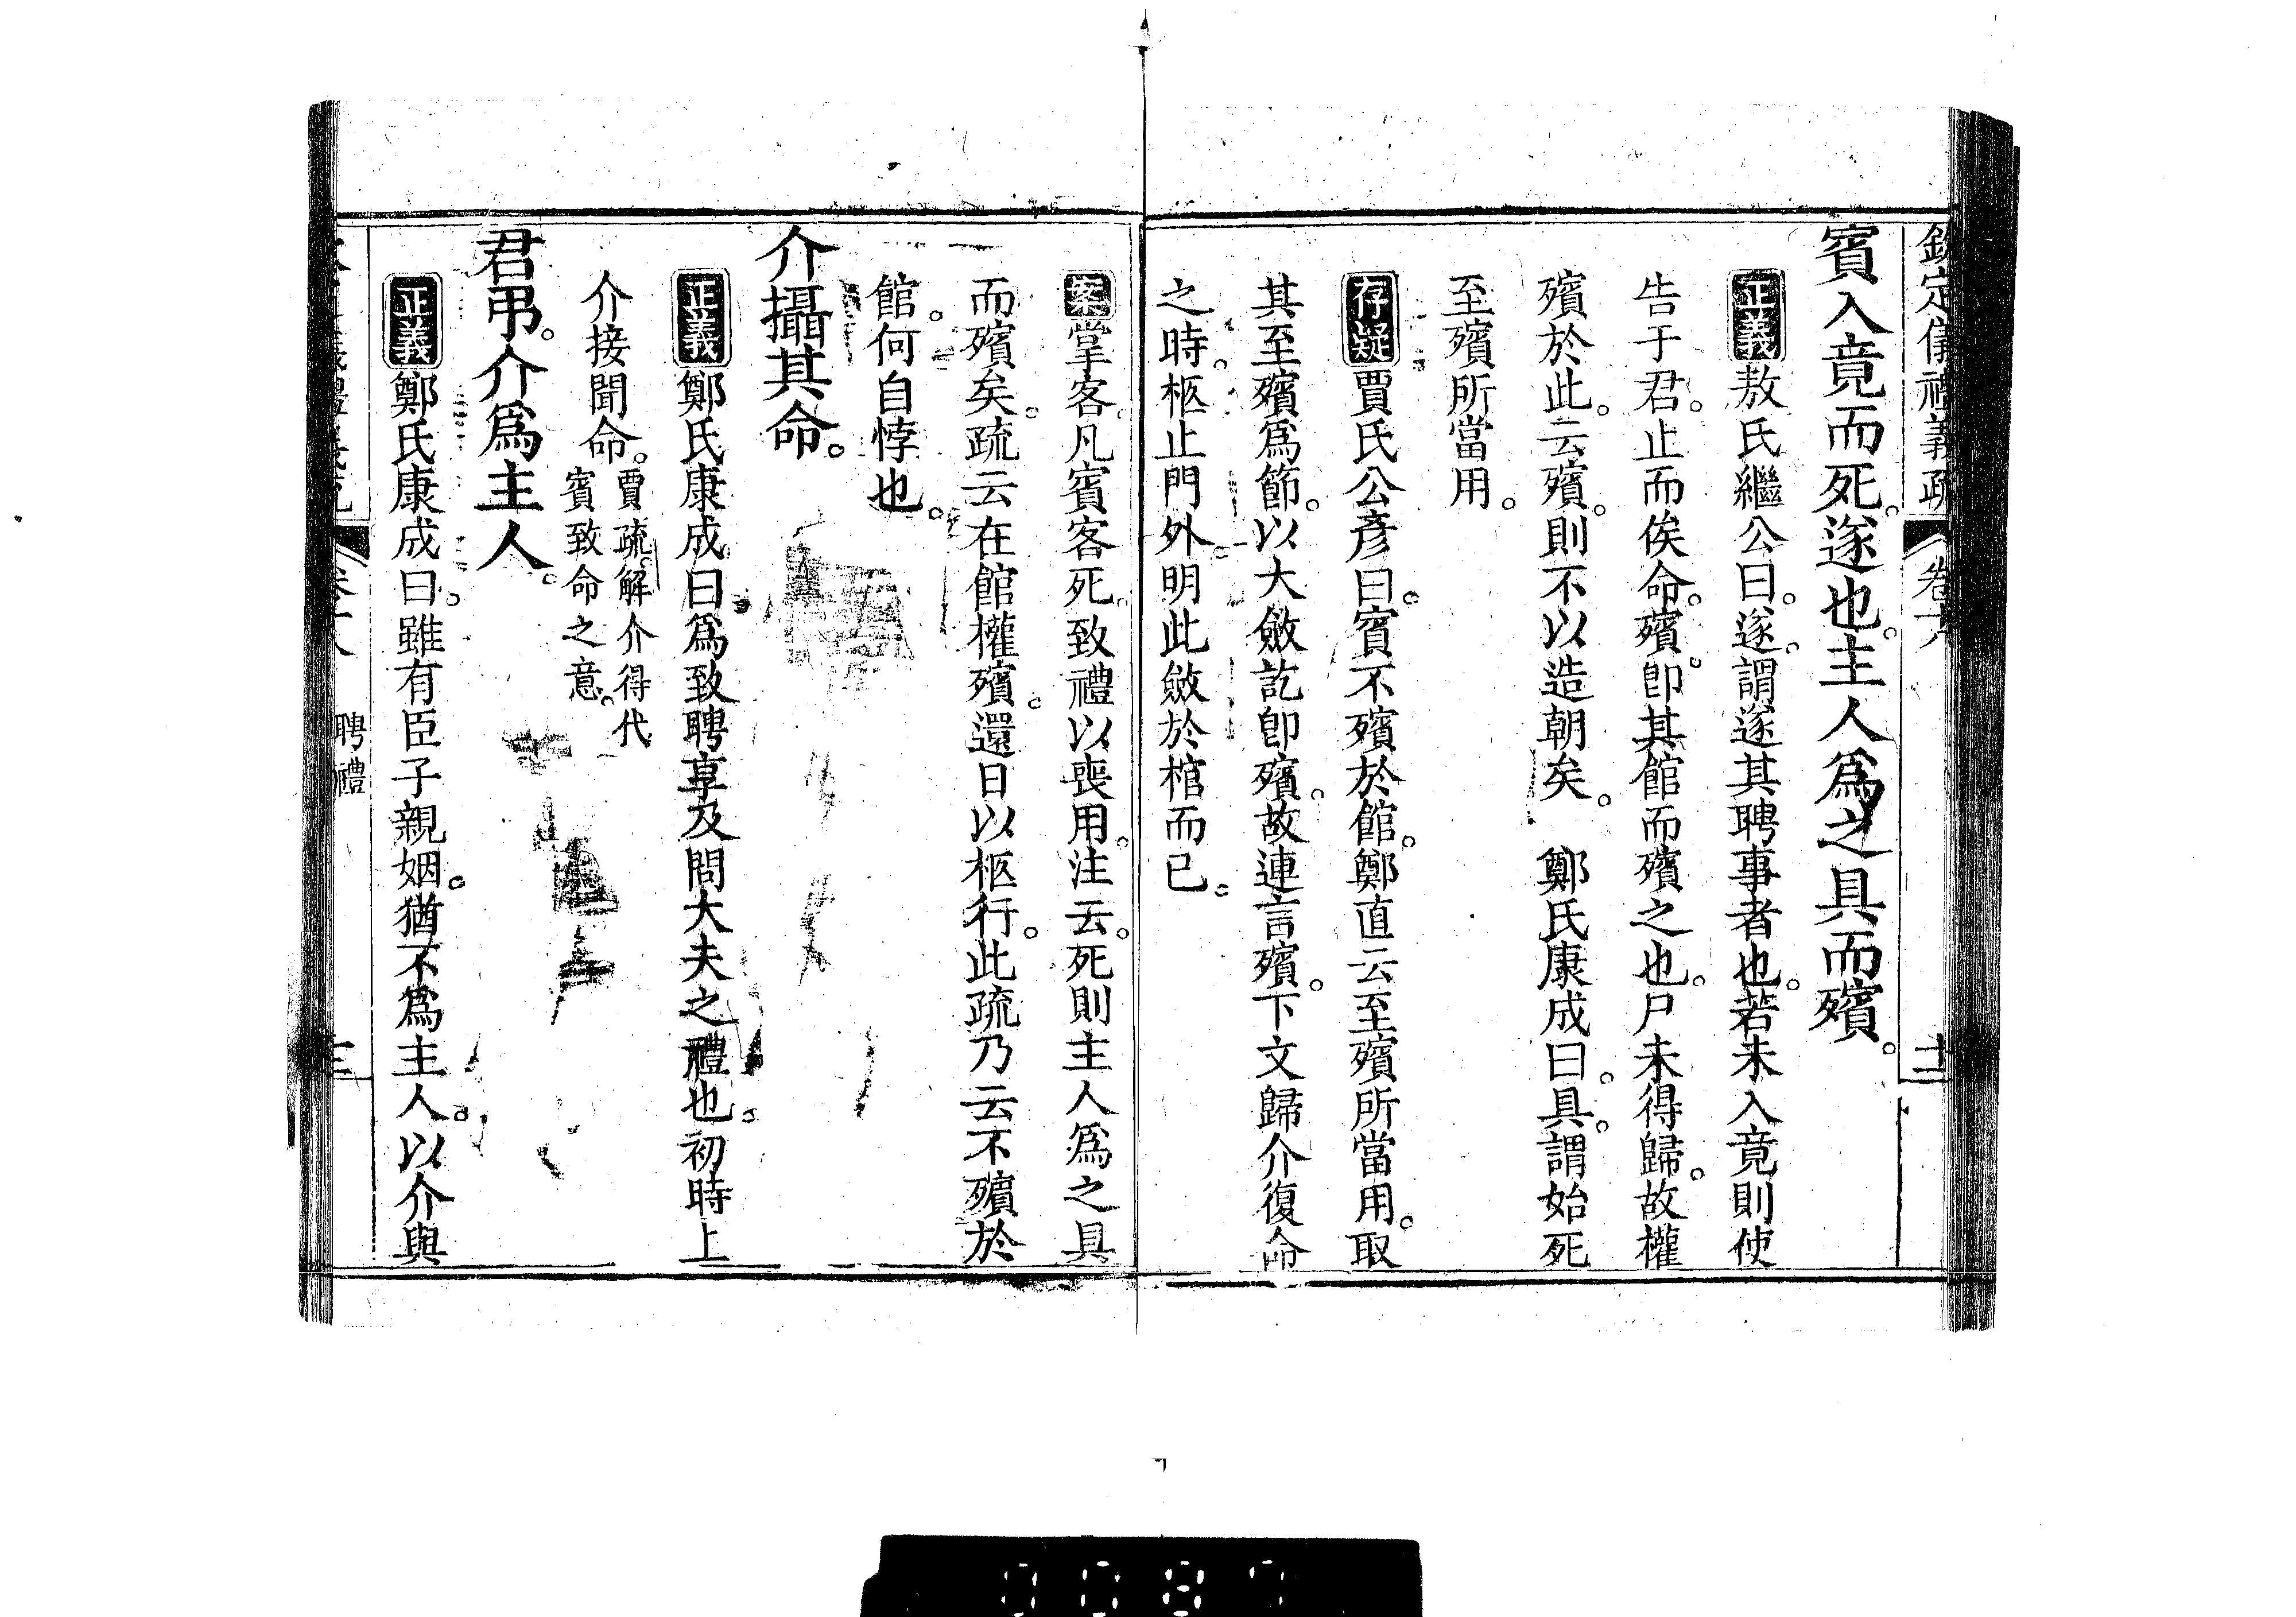 欽定儀禮義疏 卷十八
賓入竟而死。遂也。主人爲之具而殯。
正義敖氏繼公曰。遂。謂遂其聘事者也。若未入竟則使
告于君。止而俟命。殯。卽其館而殯之也。尸未得歸。故權
殯於此。云殯。則不以造朝矣。 鄭氏康成曰。具。謂始死
至殯所當用。
存疑賈氏公彥曰。賓不殯於館。鄭直云至殯所當用。取
其至殯爲節。以大斂訖卽殯。故連言殯。下文歸介復命
之時。柩止門外。明此斂於棺而已。
案掌客。凡賓客死。致禮以喪用。注云。死則主人爲之具
而殯矣。疏云在館權殯。還日以柩行。此疏乃云不殯於
館。何自悖也。
介攝其命。
正義鄭氏康成曰。爲致聘享及問大夫之禮也。初時上
介接聞命。賈疏。解介得代
賓致命之意。
君弔。介爲主人。
正義鄭氏康成曰。雖有臣子親姻。猶不爲主人。以介與
聘禮